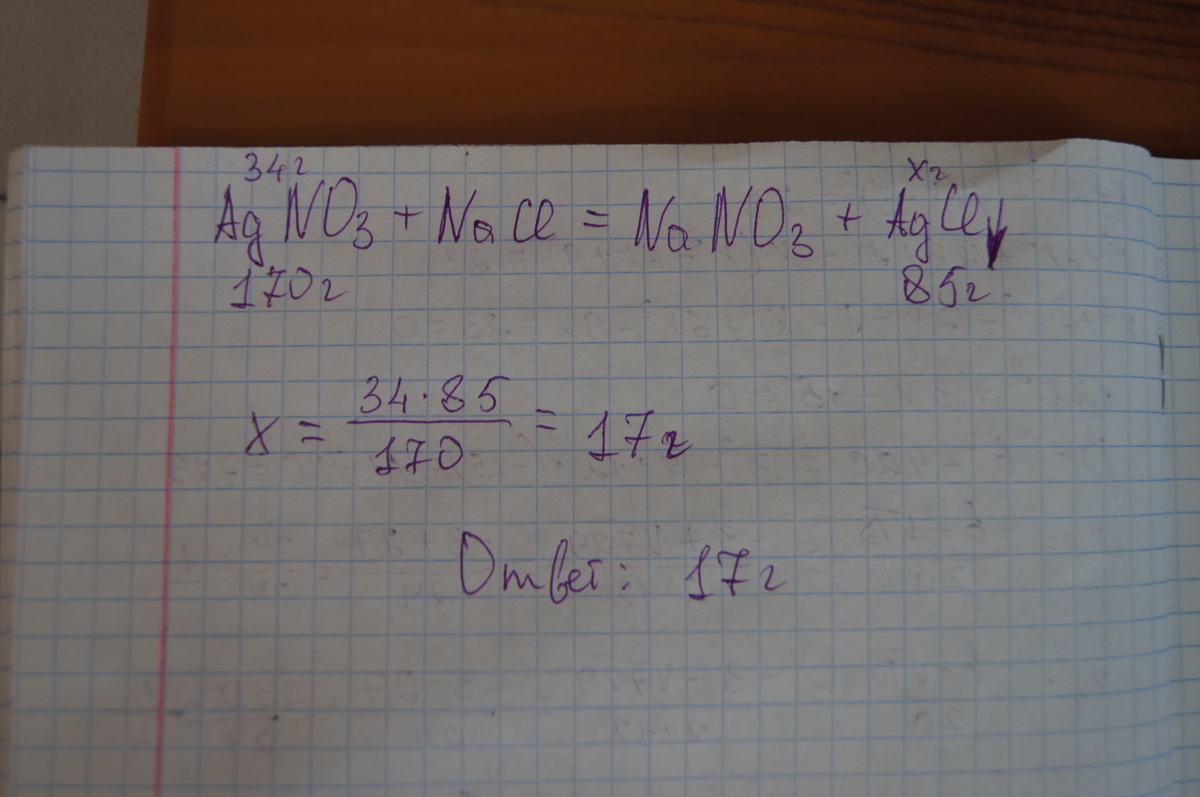 34г xг
AgNO₃ + NaCl = NaNO₃ + AgCl↓
170г 85г
x = 34·85/170 = 17г
Ответ: 17г